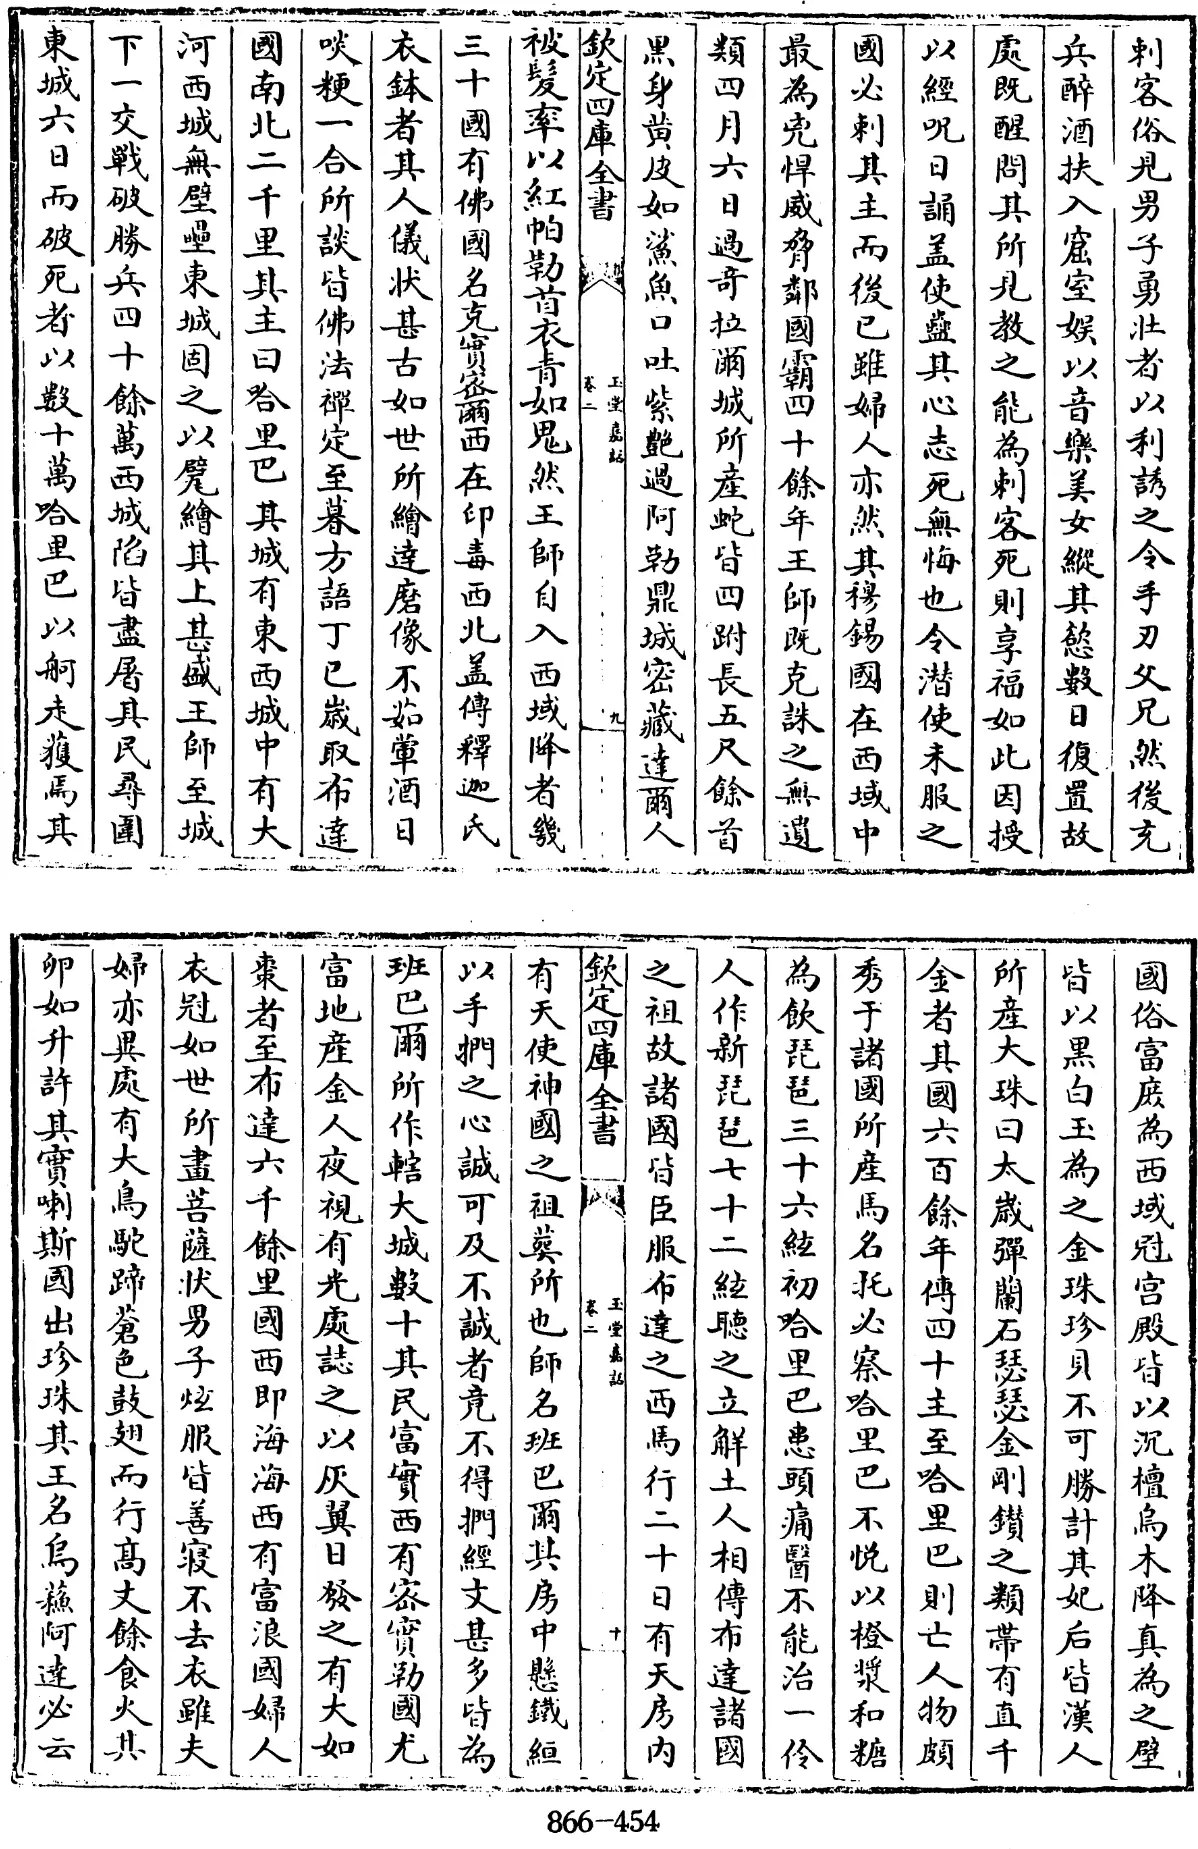 刺客俗見男子勇壯者以利誘之令手刃父兄然後充
兵醉酒扶入窟室娱以音樂美女縱其慾數日復置故
處既醒問其所見教之能為刺客死則享福如此因授
以經呪日誦盖使蠱其心志死無悔也令潛使未服之
國必刺其主而後已雖婦人亦然其穆錫國在西域中
最為兇悍威脅鄰國霸四十餘年王師既克誅之無遺
類四月六日過奇拉爾城所產蛇皆四跗長五尺餘首
黒身黄皮如鯊魚口吐紫艷過阿勒鼎城密藏達爾人
欽定四庫全書
玉堂嘉話
卷二
九
被髮率以紅帕勒首衣青如鬼然王師自入西域降者幾
三十國有佛國名克實密爾西在印毒西北盖傳釋迦氏
衣鉢者其人儀狀甚古如世所繪達磨像不茹葷酒日
啖粳一合所談皆佛法禪定至暮方語丁巳歲取布達
國南北二千里其主曰哈里巴其城有東西城中有大
河西城無壁壘東城固之以甓繪其上甚盛王師至城
下一交戰破勝兵四十餘萬西城陷皆盡屠其民尋圍
東城六日而破死者以數十萬哈里巴以舸走獲焉其
國俗富庶為西域冠宫殿皆以沉檀烏木降真為之壁
皆以黒白玉為之金珠珍貝不可勝計其妃后皆漢人
所產大珠曰太歲彈蘭石瑟瑟金剛鑚之類帶有直千
金者其國六百餘年傳四十主至哈里巴則亡人物頗
秀于諸國所產馬名托必察哈里巴不悅以橙漿和糖
為飲琵琶三十六絃初哈里巴患頭痛醫不能治一伶
人作新琵琶七十二絃聽之立解土人相傳布達諸國
之祖故諸國皆臣服布達之西馬行二十日有天房内
欽定四庫全書
玉堂嘉話
卷二
十
有天使神國之祖塟所也師名班巴爾其房中懸鐵絙
以手捫之心誠可及不誠者竟不得捫經文甚多皆為
班巴爾所作轄大城數十其民富實西有密實勒國尤
富地產金人夜視有光處誌之以灰翼日發之有大如
棗者至布達六千餘里國西即海海西有富浪國婦人
衣冠如世所畫菩薩狀男子炫服皆善寢不去衣雖夫
婦亦異處有大鳥駝蹄蒼色鼓翅而行高丈餘食火其
卵如升許其實喇斯國出珍珠其王名烏蘓阿達必云
866-454